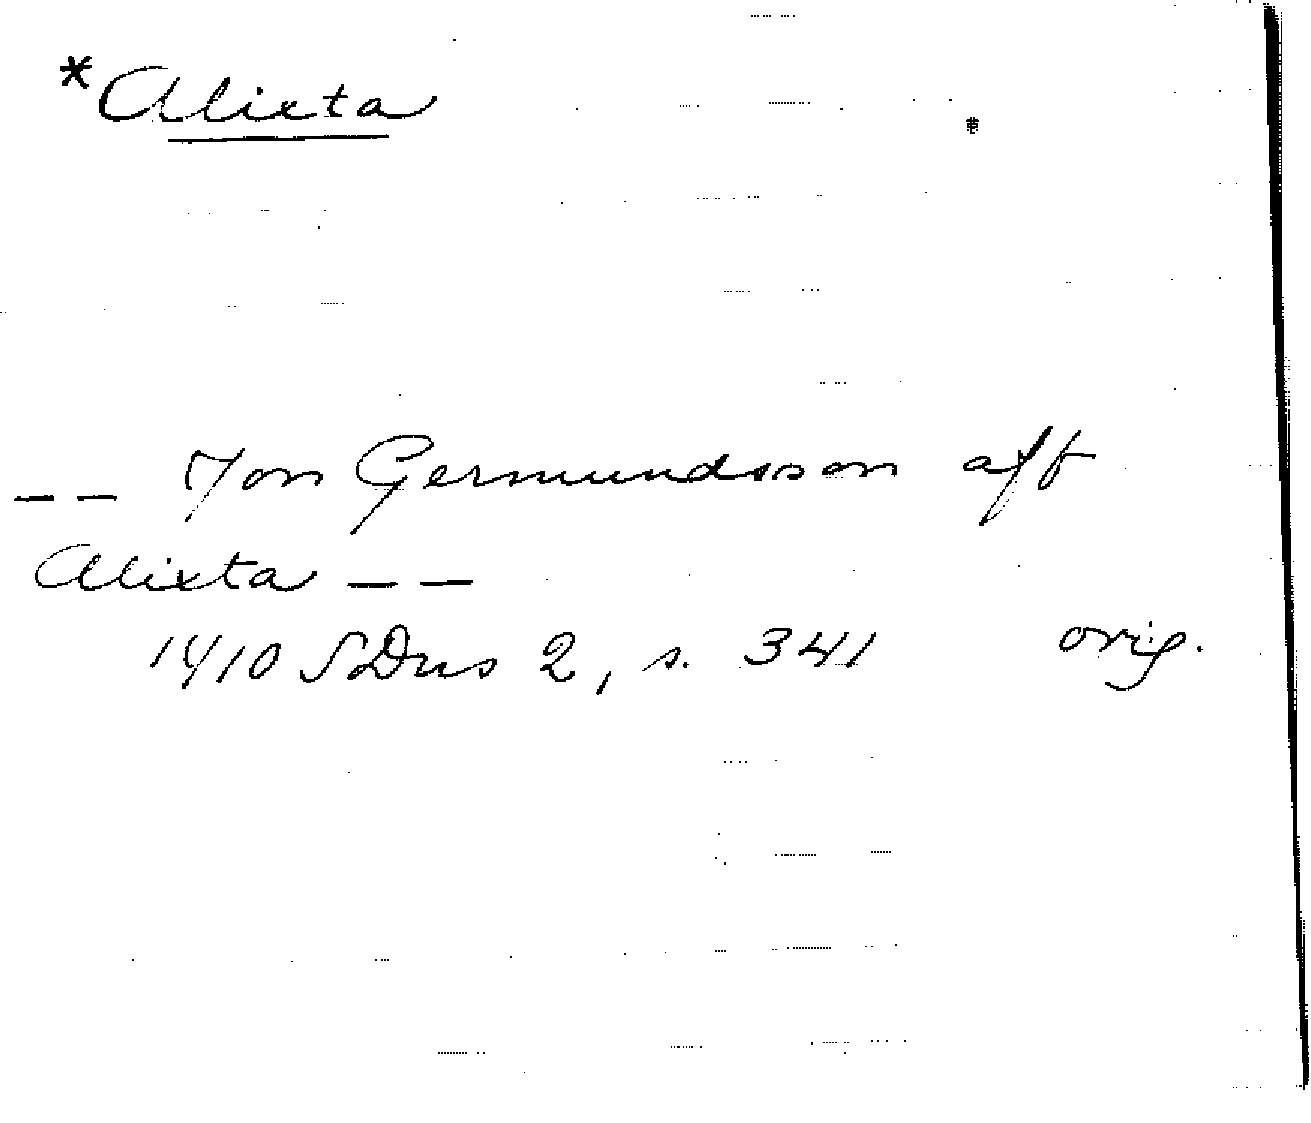 *Alixta
-- Jon Germundsson aff
Alixta --
1410 SDns 2, s. 341 orig.